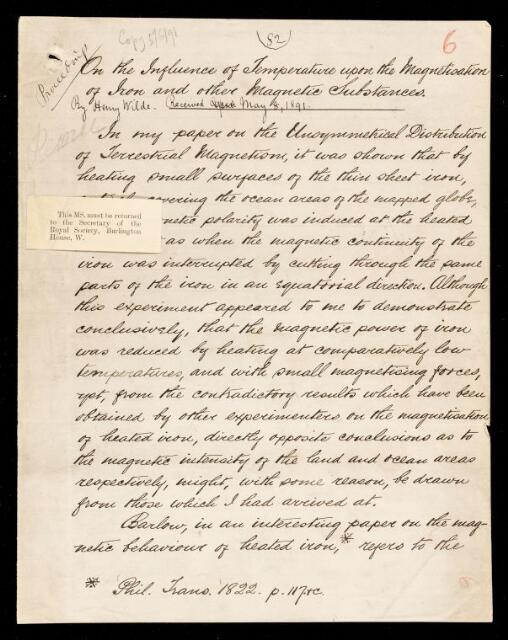 Copy 5/6/91
(82)
6
Proceedings
On the Influence of Temperature upon the Magnetisation
of Iron and other Magnetic Substances.
By Henry Wilde. Received May 1891.
In my paper on the Unsymmetrical Distribution
of Terrestrial Magnetism, it was shown that by
heating small surfaces of the thin sheet iron,
covering the ocean areas of the mapped globe,
This MS. must be returned
to the Secretary of the
Royal Society, Burlington
House, W.
netic polarity was induced at the heated
as when the magnetic continuity of the
iron was interrupted by cutting through the same
parts of the iron in an equatorial direction. Although
this experiment appeared to me to demonstrate
conclusively, that the magnetic power of iron
was reduced by heating at comparatively low
temperatures, and with small magnetising forces,
yet, from the contradictory results which have been
obtained by other experimenters on the magnetisation
of heated iron, directly opposite conclusions as to
the magnetic intensity of the land and ocean areas
respectively, might, with some reason, be drawn
from those which I had arrived at.
Barlow, in an interesting paper on the mag-
netic behaviour of heated iron,* refers to the
* Phil. Trans. 1822. p. 117 &c.